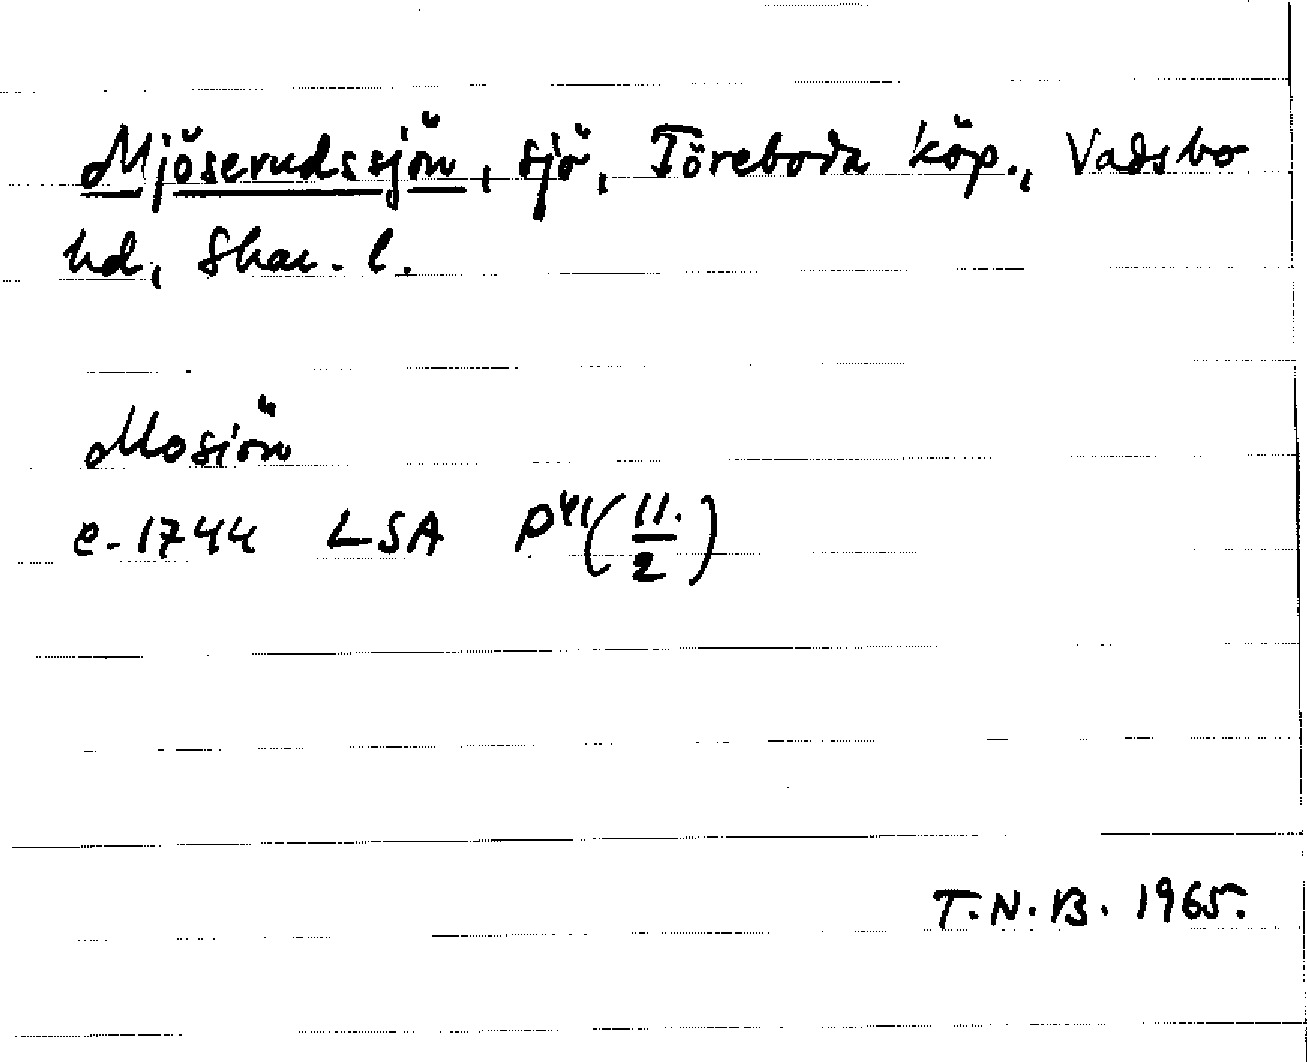 Mjöserudssjön, sjö, Töreboda köp., Vadsbo
hd, Skar. l.
Mosiön
e. 1744 LSA P41(11./2)
T.N.B. 1965.